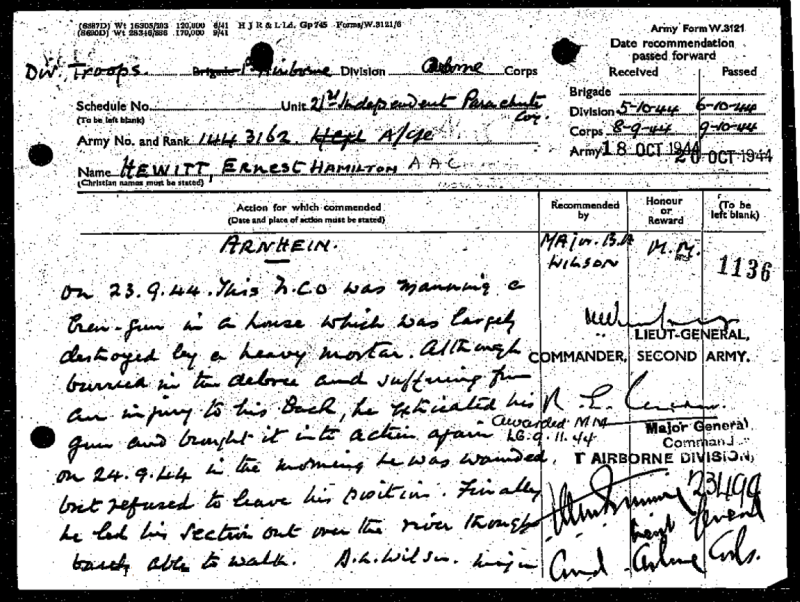 (6587D) Wt 16305/293 120,000 6/41 H J R & L Ld. Gp 745 Forms/W.3121/6
(8690D) Wt 28346/886 170,000 9/41
Army Form W.3121
Date recommendation passed forward
Received Passed
Div. Troops. Brigade 1st Airborne Division Airborne Corps
Brigade
Schedule No. Unit 21st Independent Parachute Coy.
(To be left blank)
Division 5-10-44 6-10-44
Corps 8-9-44 9-10-44
Army No. and Rank 1443162 A/Cpl
Army 18 OCT 1944 20 OCT 1944
Name HEWITT, ERNEST HAMILTON A A C
(Christian names must be stated)
Action for which commended
(Date and place of action must be stated)
Recommended by
Honour or Reward
(To be left blank)
ARNHEIN.
MAJOR. B.A WILSON
M.M.
1136
On 23.9.44. This N.C.O was manning a
bren-gun in a house which was largely
destroyed by a heavy mortar. Although
burried in the debree and suffering from
an injury to his back, he exticated his
gun and brought it into action again
on 24.9.44 in the morning he was wounded,
but refused to leave his position. Finally
he led his section out over the river though
barely able to walk. B.A. Wilson. Major
LIEUT-GENERAL,
COMMANDER, SECOND ARMY.
Awarded MM
LG. 9.11.44
Major General
Command
1 AIRBORNE DIVISION,
23499
Lieut General
Comd Airborne Corps.